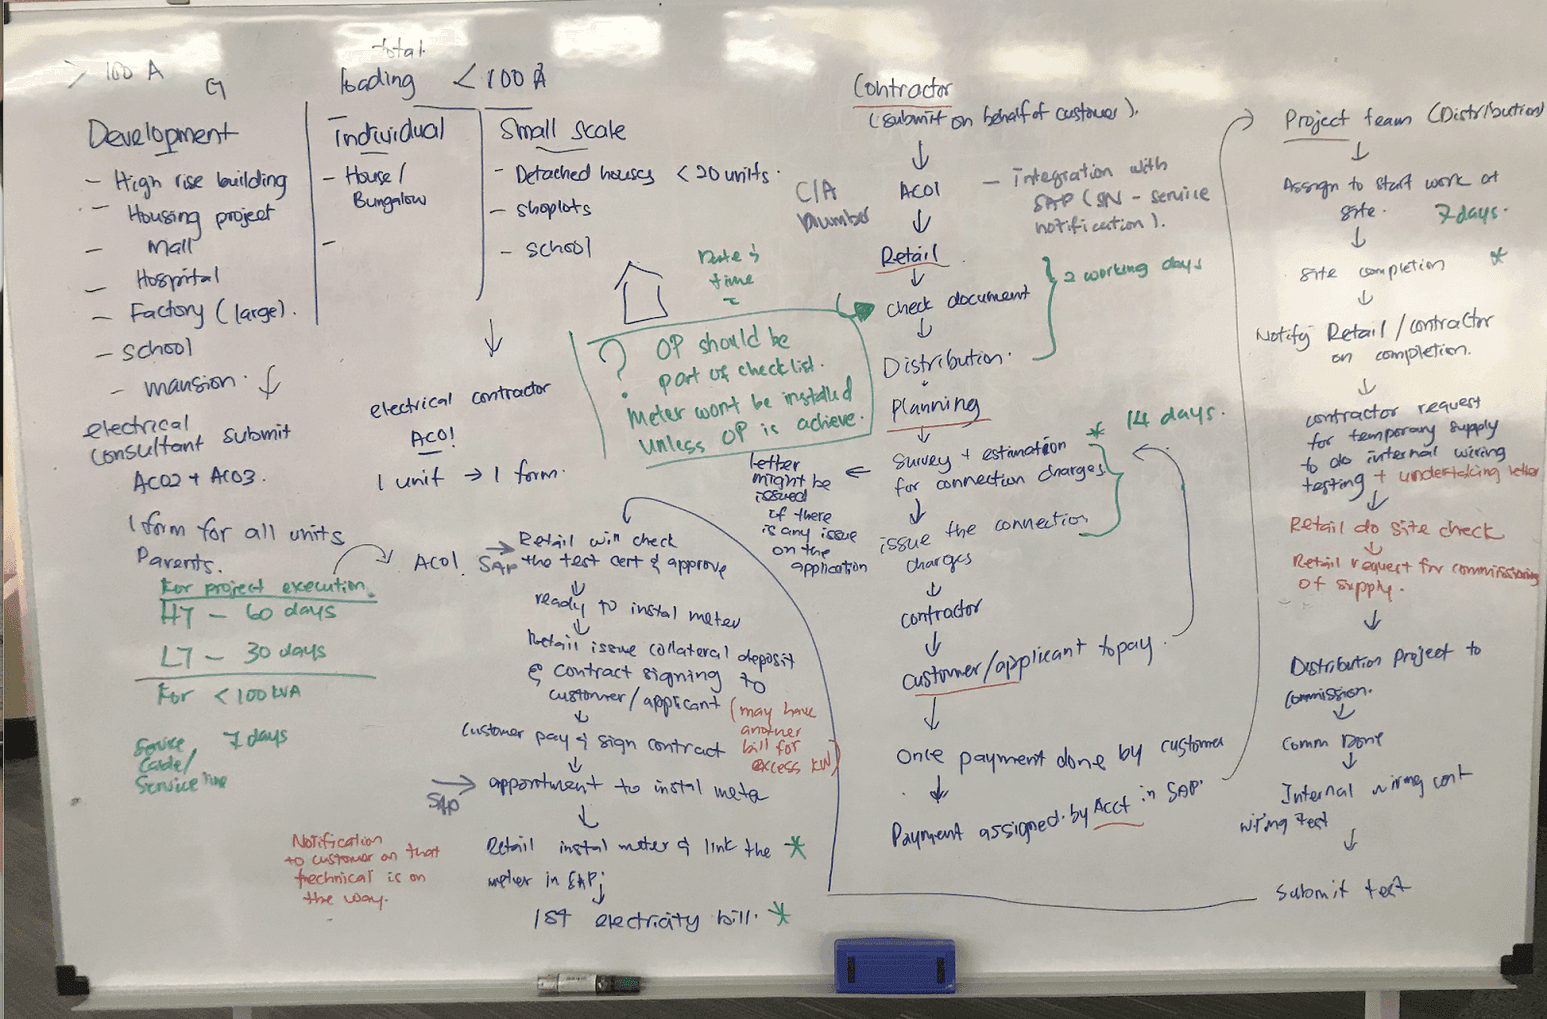 > 100 A
total
loading < 100 A
Development
- High rise building
- Housing project
- Mall
- Hospital
- Factory (large).
- School
- mansion.
electrical
consultant submit
AC02 + AC03.
1 form for all units
Parents.
For project execution
HT - 60 days
LT - 30 days
For < 100 kVA
Service 7 days
Cable/
Service line
Individual
- House/
Bungalow
-
Small scale
- Detached houses < 20 units.
- shoplots
- school
electrical contractor
AC01
1 unit → 1 form.
AC01
SAP
Retail will check
the test cert & approve
ready to instal meter
Retail issue collateral deposit
& contract signing to
customer/applicant
(may have
another
bill for
excess kW)
customer pay & sign contract
SAP
appointment to instal meter
Retail instal meter & link the *
meter in SAP;
1st electricity bill. *
Notification
to customer on that
technical is on
the way.
Date &
time
? OP should be
part of checklist.
Meter wont be installed
unless OP is achieve.
Contractor
(submit on behalf of customer).
AC01
CIA
Number
- integration with
SAP (SN - service
notification).
Retail
check document
2 working days
Distribution.
Planning
* 14 days.
survey + estimation
for connection charges
letter
might be
issued
if there
is any issue
on the
application
issue the connection
charges
contractor
customer/applicant to pay.
Once payment done by customer
Payment assigned by Acct in SAP.
Project team (Distribution)
Assign to start work at
site. 7 days.
site completion *
Notify Retail/contractor
on completion.
contractor request
for temporary supply
to do internal wiring
testing + undertaking letter
Retail do site check
Retail request for commissioning
of supply.
Distribution Project to
commission.
Comm Done
Internal wiring cont
wiring test
Submit test